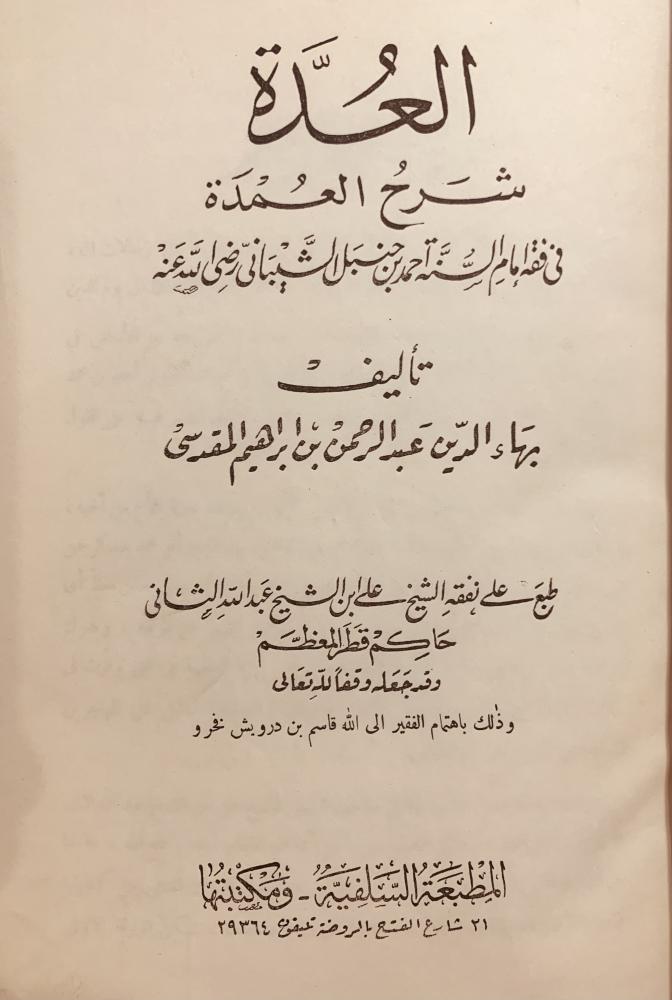 العُدَّة
شَرحُ العُمْدَة
فى فقه إمام السُّنَّة أحمد بن حنبل الشَّيبانىّ رضى الله عنه
تأليف
بهاء الدين عبد الرحمن بن ابراهيم المقدسى
طبع على نفقة الشيخ على ابن الشيخ عبد الله الثانى
حاكم قطر المعظم
وقد جعله وقفاً لله تعالى
وذٰلك باهتمام الفقير الى الله قاسم بن درويش فخرو
المطبعة السلفية - ومكتبتها
٢١ شارع الفتح بالروضة تليفون ٢٩٣٦٤